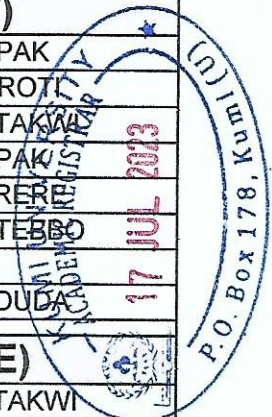 )
PAK
ROTI
TAKWI
PAK
RERE
TEBBO
DUDA
E)
TAKWI
KUMI UNIVERSITY
ACADEMIC REGISTRAR
17 JUL 2023
P.O. Box 178, Kumi (U)